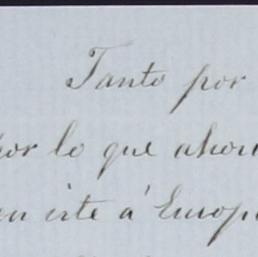 Tanto por
por lo que ahor
en irte á Europ